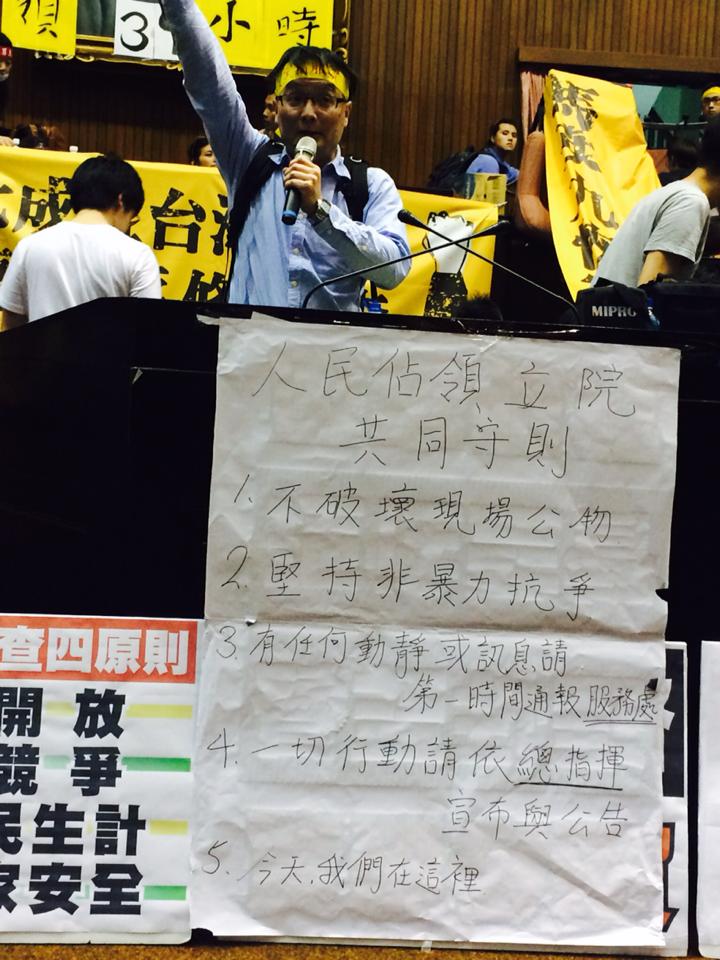 須
3
小時
成
台
MIPRO
人民佔領立院
共同守則
1. 不破壞現場公物
2. 堅持非暴力抗爭
3. 有任何動靜或訊息請
第一時間通報服務處
4. 一切行動請依總指揮
宣布與公告
5. 今天,我們在這裡
查四原則
開放
競爭
民生計
家安全